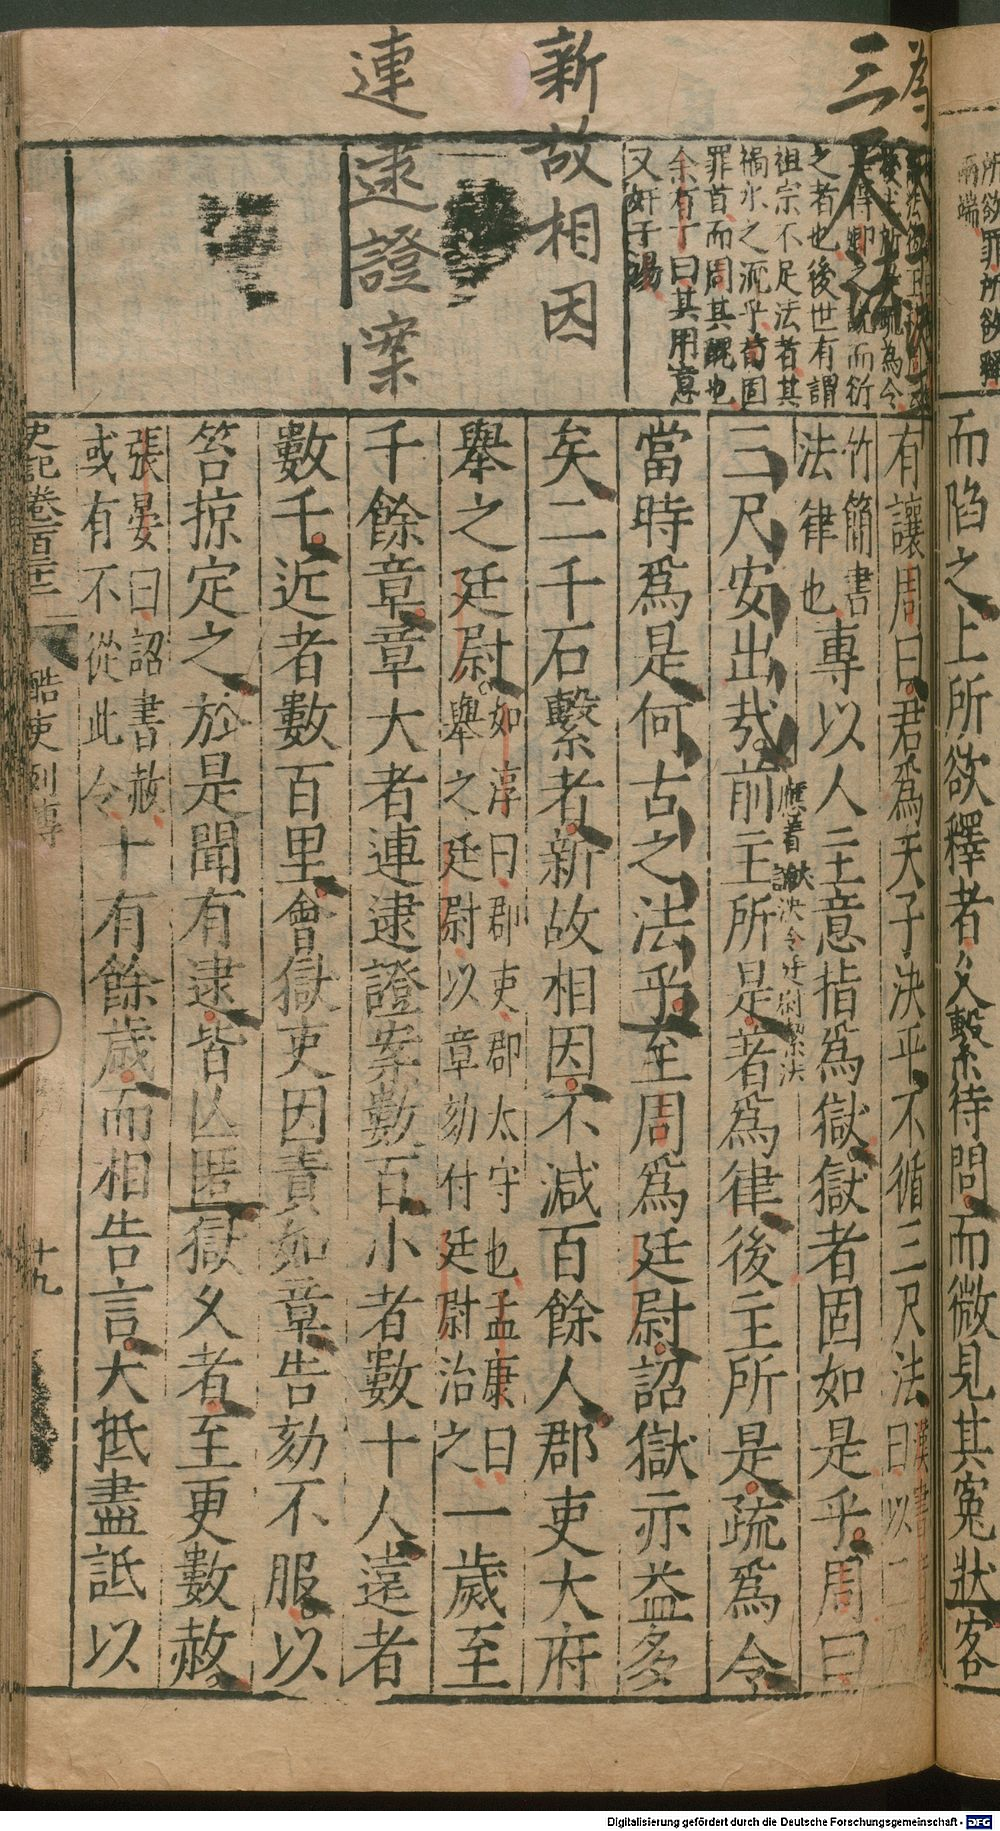 而陷之上所欲釋者久繫待問而微見其寃狀客
三尺
新故相因
連逮證案
之者也後世有謂
祖宗不足法者其
禍水之派乎荀固
罪首而周其醜也
余有丁曰其用意
又奸于湯
有讓周曰君爲天子決平不循三尺法
竹簡書
法律也
專以人主意指爲獄獄者固如是乎周曰
三尺安出哉前主所是著爲律後主所是疏爲令
當時爲是何古之法乎至周爲廷尉詔獄亦益多
矣二千石繫者新故相因不減百餘人郡吏大府
舉之廷尉
如淳曰郡吏郡太守也孟康曰
舉之廷尉以章劾付廷尉治之
一歲至
千餘章章大者連逮證案數百小者數十人遠者
數千近者數百里會獄吏因責如章告劾不服以
笞掠定之於是聞有逮皆亡匿獄久者至更數赦
張晏曰詔書赦
或有不從此令
十有餘歲而相告言大抵盡詆以
酷吏列傳
十九
Digitalisierung gefördert durch die Deutsche Forschungsgemeinschaft - DFG